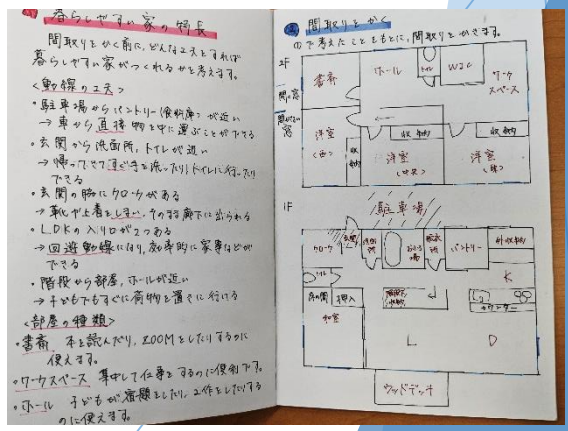 暮らしやすい家の特長
間取りをかく前に、どんな工夫をすれば
暮らしやすい家がつくれるかを考えます。
<動線の工夫>
・駐車場からパントリー(食料庫)が近い
→車から直接物を中に運ぶことができる
・玄関から洗面所、トイレが近い
→帰ってきてすぐ手を洗ったり、トイレに行ったり
できる
・玄関の脇にクロークがある
→靴や上着をしまい、そのまま廊下に出られる
・LDKの入り口が2つある
→回遊動線になり、効率的に家事などが
できる
・階段から部屋、ホールが近い
→子どもでもすぐに荷物を置きに行ける
<部屋の種類>
・書斎 本を読んだり、ZOOMをしたりするのに
使えます。
・ワークスペース 集中して仕事をするのに便利です。
・ホール 子どもが宿題をしたり、工作をしたりする
のに使えます。
間取りをかく
①で考えたことをもとに、間取りをかきます。
2F
書斎
ホール
トイレ
WIC
ワークスペース
洋室
収納
収納
洋室
収納
洋室
1F
駐車場
クローク
玄関
洗面所
おふろ場
脱衣所
パントリー
外収納
トイレ
K
床の間
押入
カウンター
和室
L
D
ウッドデッキ